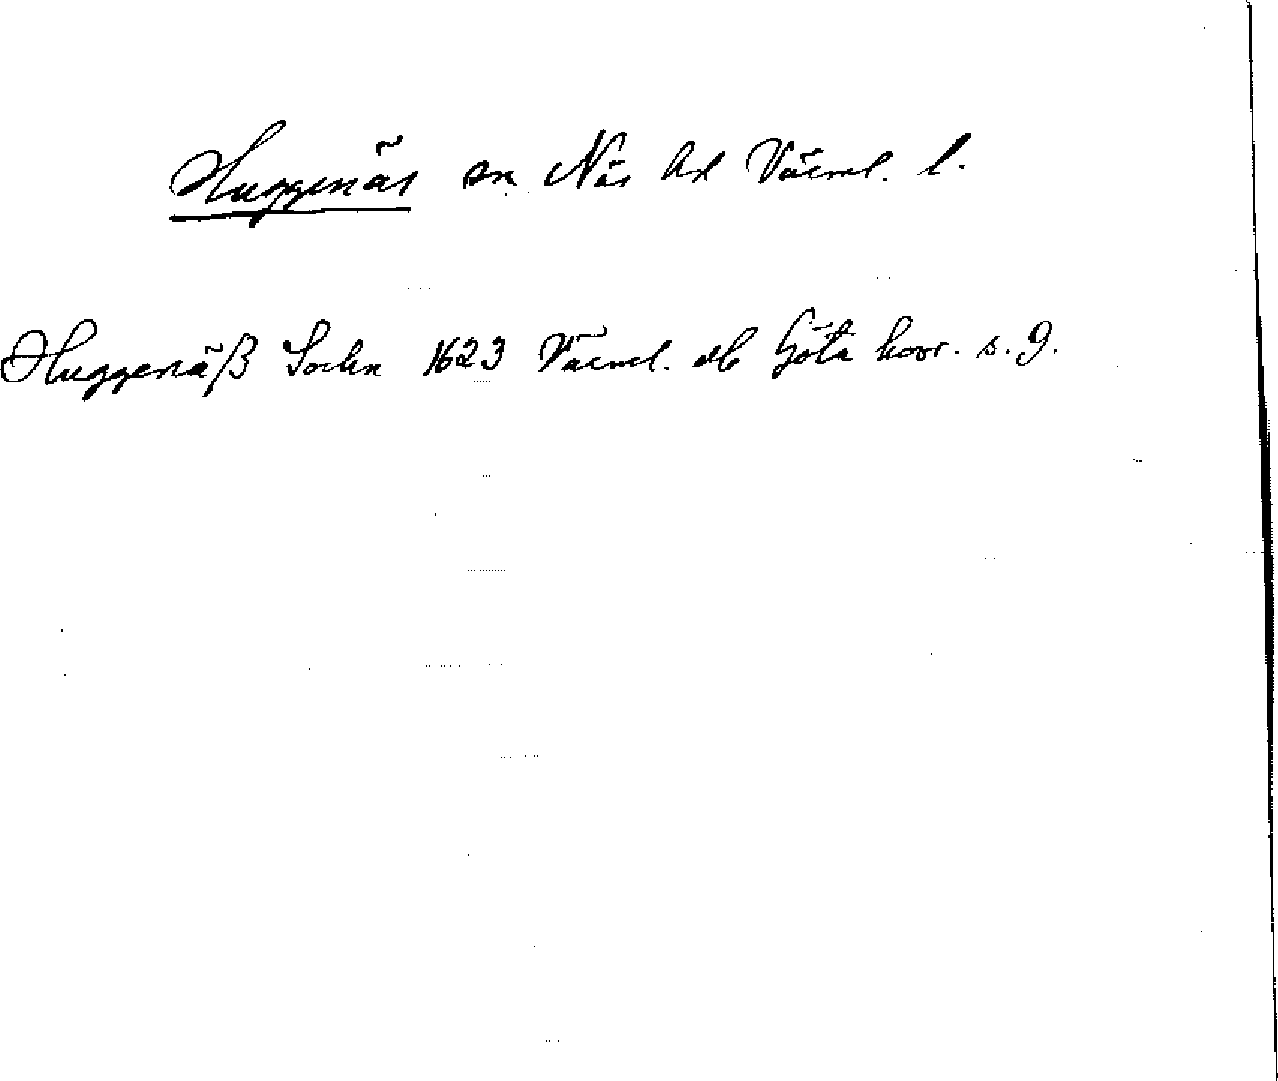 Huggenäs sn Näs hd Värml. l.
Huggenäß Sochn 1623 Värml. db Göta hovr. s. 9.